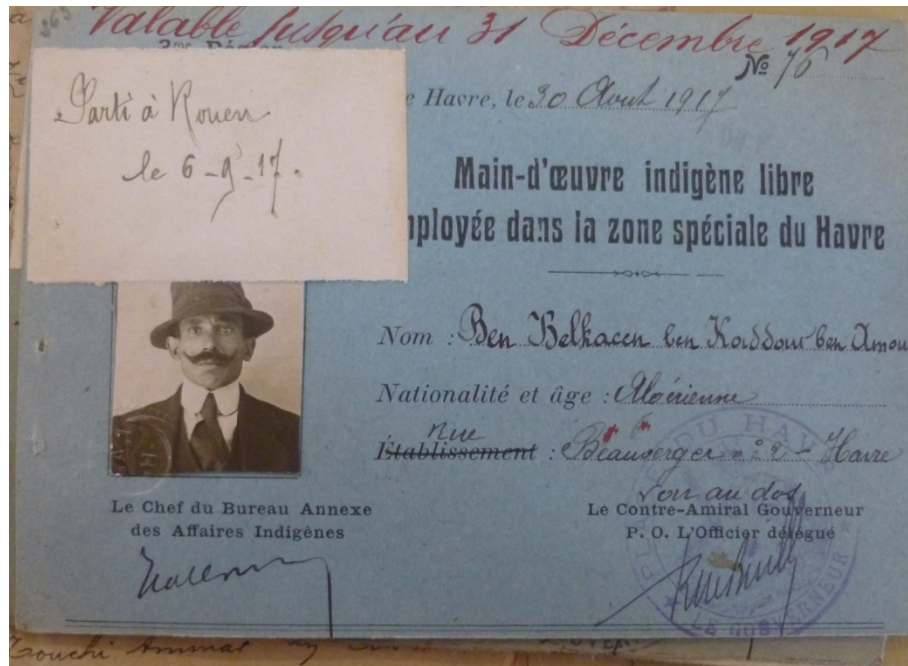 Valable jusqu'au 31 Décembre 1917
3me
No 76
Parti à Rouen
le 6-9-17.
e Havre, le 30 Aout 1917
Main-d'œuvre indigène libre
mployée dans la zone spéciale du Havre
Nom : Ben Belkacen ben Kaddour ben Amou
Nationalité et âge : Algérienne
rue
Établissement : Beauverger n° 2 - Havre
voir au dos
Le Chef du Bureau Annexe
des Affaires Indigènes
Le Contre-Amiral Gouverneur
P. O. L'Officier délégué
DU HAV
LE GOUVERNEUR